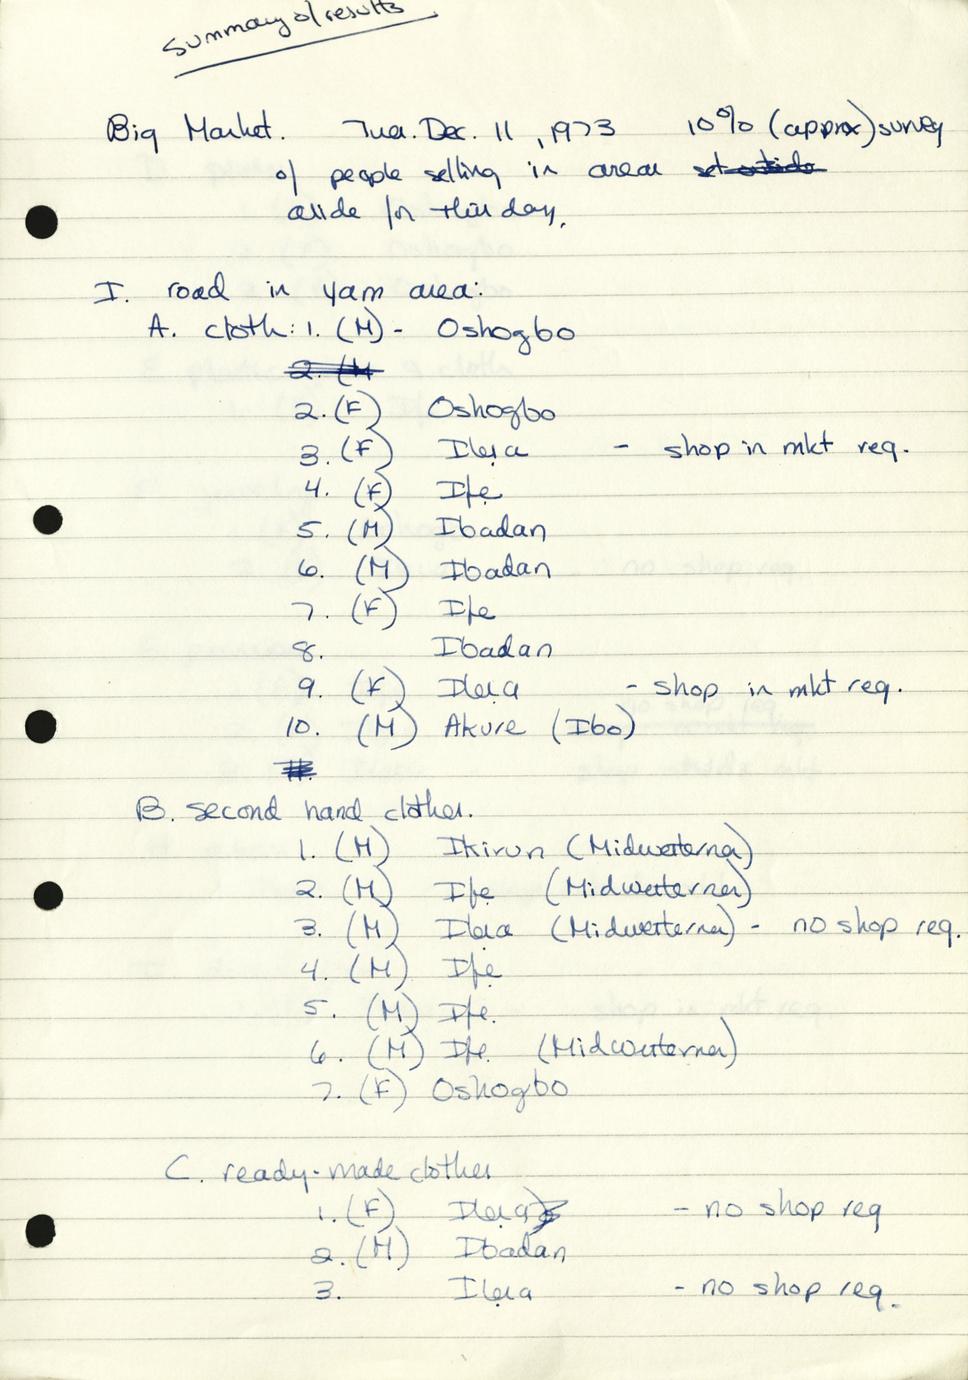 Summary of results
Big Market. Tues. Dec. 11, 1973 10% (approx) survey
of people selling in areas set outside
aside for this day.
I. road in yam area:
A. cloth: 1. (M) - Oshogbo
2. (M
2. (F) Oshogbo
3. (F) Ilesa - shop in mkt req.
4. (F) Ife
5. (M) Ibadan
6. (M) Ibadan
7. (F) Ife
8. Ibadan
9. (F) Ilesa - shop in mkt req.
10. (M) Akure (Ibo)
B. second hand clothes.
1. (M) Ikirun (Midwesterna)
2. (M) Ife (Midwesterner)
3. (M) Ilesa (Midwesterner) - no shop req.
4. (M) Ife
5. (M) Ife.
6. (M) Ife (Midwesterner)
7. (F) Oshogbo
C. ready-made clothes
1. (F) Ilesa - no shop req
2. (M) Ibadan
3. Ilesa - no shop req.